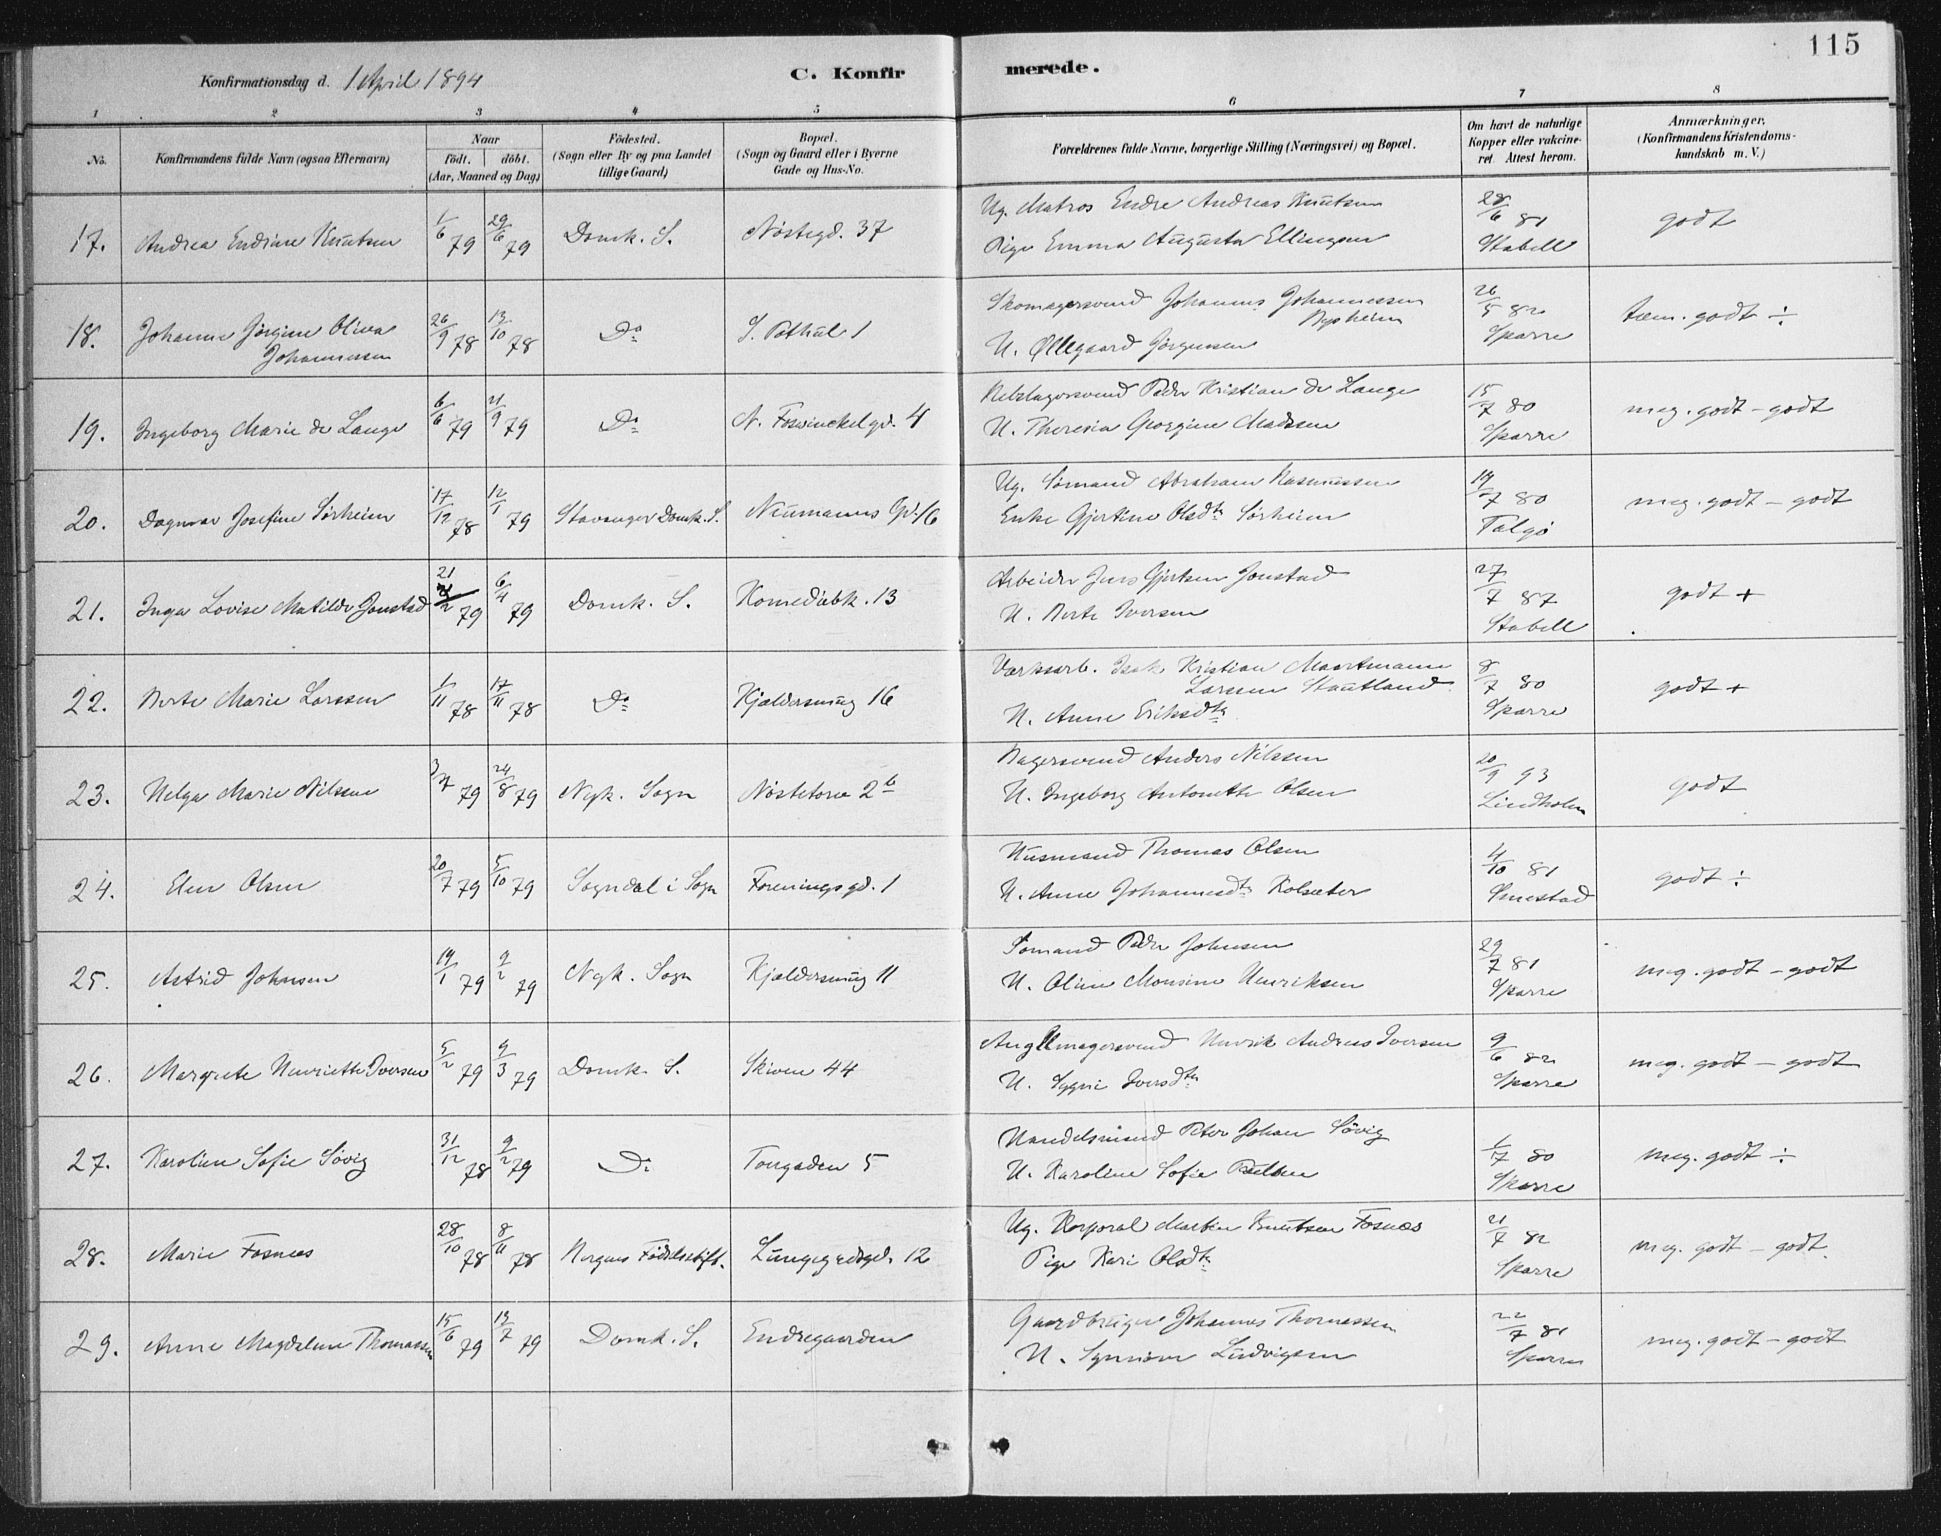 115
Konfirmationsdag d. 1 April 1894
C. Konfirmerede.
1 2 3 4 5 6 7 8
No.
Konfirmandens fulde Navn (ogsaa Efternavn)
Naar
födt. döbt.
(Aar, Maaned og Dag)
Födested.
(Sogn eller By og paa Landet
tillige Gaard)
Bopæl.
(Sogn og Gaard eller i Byerne
Gade og Hus-No.
Forældrenes fulde Navne, borgerlige Stilling (Næringsvei) og Bopæl.
Om havt de naturlige
Kopper eller vakcine-
ret. Attest herom.
Anmærkninger.
(Konfirmandens Kristendoms-
kundskab m. V.)
17. Andrea Endrine Knutsen 1/6 79 29/6 79 Domk. S. Nöstegd. 37
Ug. Matros Endre Andreas Knutsen
Pige Emma Augusta Ellingsen
28/6 81
Stabell
godt
18. Johanne Jörgine Oliva
Johannessen
26/9 78 13/10 78 Do S. Pothul 1
Skomagersvend Johannes Johannessen
Nypheim
H. Øllegaard Jörgensen
26/5 82
Sparre
tem. godt ÷
19. Ingeborg Marie de Lange 6/6 79 21/9 79 Do N. Fosswinckelgd. 4
Rebslagersvend Peder Kristian de Lange
H. Theresia Georgine Madsen
15/7 80
Sparre
meg. godt - godt
20. Dagmar Josefine Sörheim 17/12 78 12/1 79 Stavanger Domk. S. Neumanns Gd. 16
Ug. Sömand Abraham Rasmussen
Enke Gjertine Olsdtr Sörheim
19/7 80
Talgö
meg. godt - godt
21. Inga Lovise Matilde Jonstad 21/2 79 6/4 79 Domk. S. Komediebk. 13
Arbeider Jens Gjertsen Jonstad
H. Berte Iversen
27/7 87
Stabell
godt +
22. Berte Marie Larssen 1/11 78 17/11 78 Do Kjeldersmug 16
Værksarb. Isak Kristian Maartmann
Larssen Stautland
H. Anne Eriksdtr
8/7 80
Sparre
godt +
23. Helga Marie Nilssen 3/7 79 24/8 79 Nyk. Sogn Nöstetorv 2b
Bagersvend Anders Nilssen
H. Ingeborg Antonette Olsen
20/9 93
Lindholm
godt
24. Elen Olsen 20/7 79 5/10 79 Sogndal i Sogn Foreningsgd. 1
Husmand Thomas Olsen
H. Anne Johannesdtr Kolsæter
4/10 81
Smestad
godt ÷
25. Astrid Johnsen 19/1 79 9/2 79 Nyk. Sogn Kjeldersmug 11
Sömand Peder Johnsen
H. Oline Monsine Henriksen
29/7 81
Sparre
meg. godt - godt
26. Margrete Henriette Iversen 5/2 79 9/3 79 Domk. S. Skiven 44
Henrik Andreas Iversen
H. Sygni Iversdtr
9/6 82
Sparre
meg. godt - godt
27. Karoline Sofie Sövig 31/12 78 9/2 79 Do Torgaden 5
Handelsmand Peter Johan Sövig
H. Karoline Sofie
1/7 80
Sparre
meg. godt ÷
28. Marie Fosnæs 28/10 78 8/11 78 Bergens Födselsstift. Lungegaardsgd. 12
Ug. Korporal Martin Knutsen Fosnæs
Pige Kari Olsdtr
21/7 82
Sparre
meg. godt - godt.
29. Anne Magdalene Thomassen 15/6 79 13/7 79 Domk. S. Endregaarden
Gaardbruger Johannes Thomassen
H. Synnöve Ludvigsen
22/7 81
Sparre
meg. godt - godt